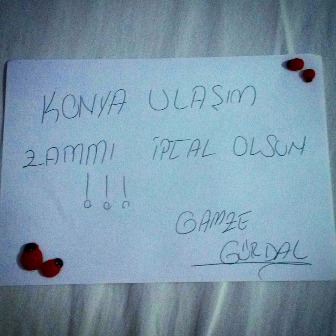 KONYA ULAŞIM
ZAMMI İPTAL OLSUN
!!!
GAMZE
GÜRDAL